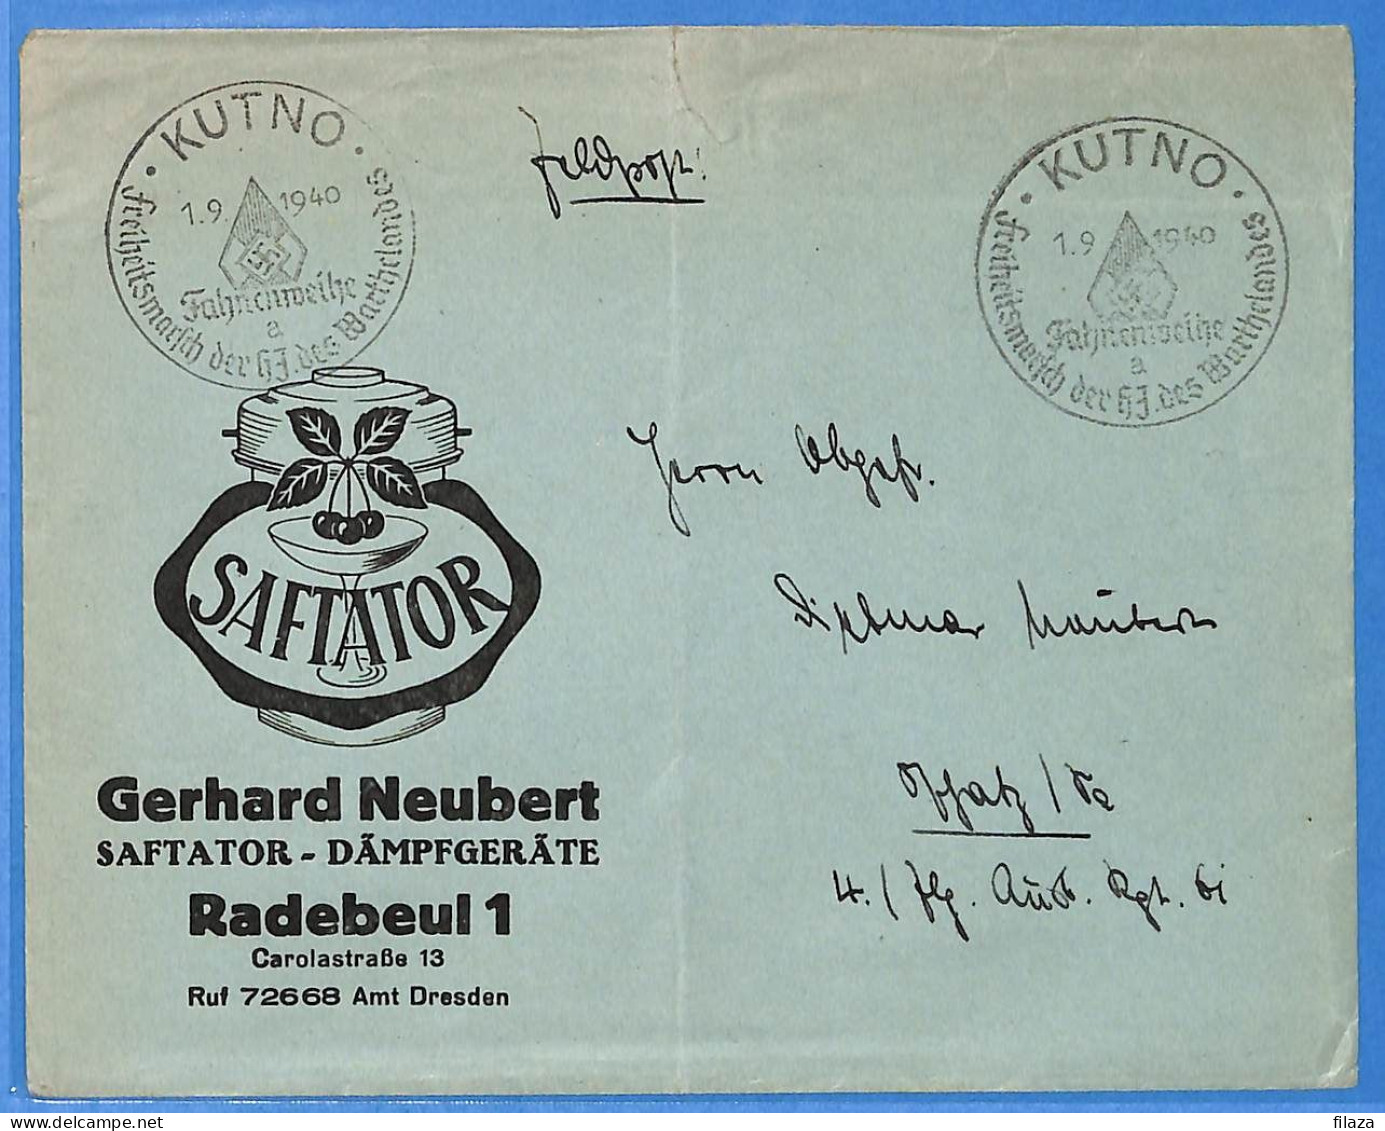 KUTNO
1.9. 1940
Fahnenweihe
a
Freiheitsmarsch der HJ. des Warthelandes
Feldpost!
KUTNO
1.9 1940
Fahnenweihe
a
Freiheitsmarsch der HJ. des Warthelandes
SAFTATOR
Gerhard Neubert
SAFTATOR - DÄMPFGERÄTE
Radebeul 1
Carolastraße 13
Ruf 72668 Amt Dresden
Herrn Obgefr.
Dietmar Neubert
Oschatz / Sa
4. / Flg. Ausb. Rgt. 61
filaza